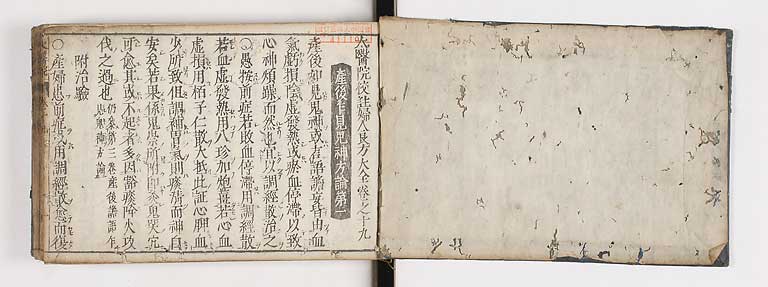 太醫院校註婦人良方大全卷之十九
產後乍見鬼神方論第一
產後如見鬼神或言語譫妄皆由血
氣虧損陰虛發熱或瘀血停滯以致
心神煩躁而然也宜以調經散治之
○愚按前症若敗血停滯用調經散
若血虛發熱用八珍加炮薑若心血
虛損用栢子仁散大抵此證心脾血
少所致但調補胃氣則痰清而神自
安矣若果係鬼祟所附即灸鬼哭穴
可愈其或不起者多因豁痰降火攻
伐之過也
仍參第三卷產後譫語作
附治驗
○產婦患前症或用調經散愈而復